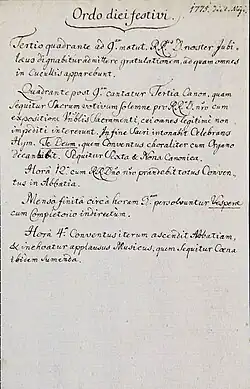 1775. die 1. Maji.
Ordo diei festivi.
Tertio quadrante ad 9.am matut. RR.mus D. noster Jubi-
læus dignabitur admittere gratulationem, ad quam omnes
in Cucullis apparebunt.
Quadrante post 9.am cantatur Tertia Canon., quam
sequitur Sacrum votivum solemne pro RR.mo D. nro cum
expositione Vnblis Sacramenti, cui omnes legitime non
impediti intererunt. In fine Sacri intonabit Celebrans
Hym. Te Deum, quem Conventus choraliter cum Organo
decantabit. Sequitur Sexta & Nona Canonica.
Horâ 12.ma cum RR.mo Dno nro prandebit totus Conven-
tus in Abbatia.
Mensâ finitâ circà horam 3.am persolvuntur Vesperæ
cum Completorio indirectum.
Horâ 4.ta Conventus iterum ascendit Abbatiam,
& inchoatur applausus Musicus, quem sequitur Cœna
ibidem sumenda.